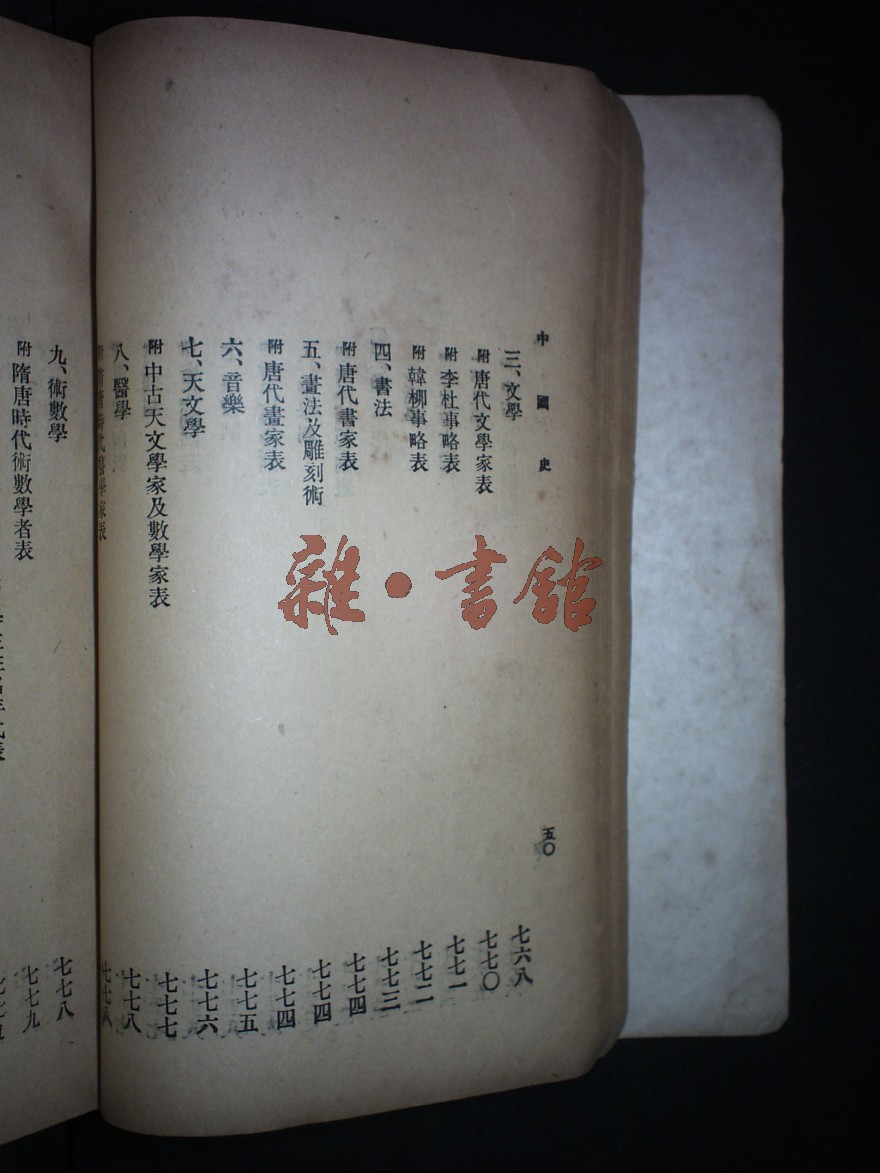 中國史
五〇
三、文學 七六八
附 唐代文學家表 七七〇
附 李杜事略表 七七一
附 韓柳事略表 七七二
四、書法 七七三
附 唐代書家表 七七四
五、畫法及雕刻術 七七四
附 唐代畫家表 七七四
六、音樂 七七五
七、天文學 七七六
附 中古天文學家及數學家表 七七七
八、醫學 七七八
附 隋唐時代醫學家表 七七八
九、術數學 七七八
附 隋唐時代術數學者表 七七九
雜·書館